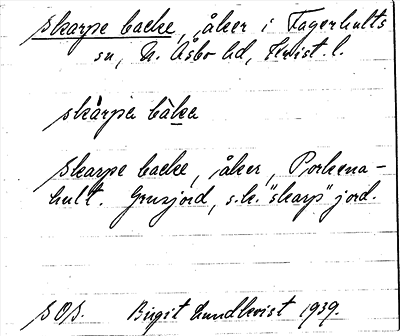 skarpe backe, åker i Fagerhults
sn, N. Åsbo hd, Krist. l.
skàrpa bàka
Skarpe backe, åker, Porkena-
hult. Grusjord, s.k. "skarp" jord.
SOS. Birgit Lundkvist 1939.